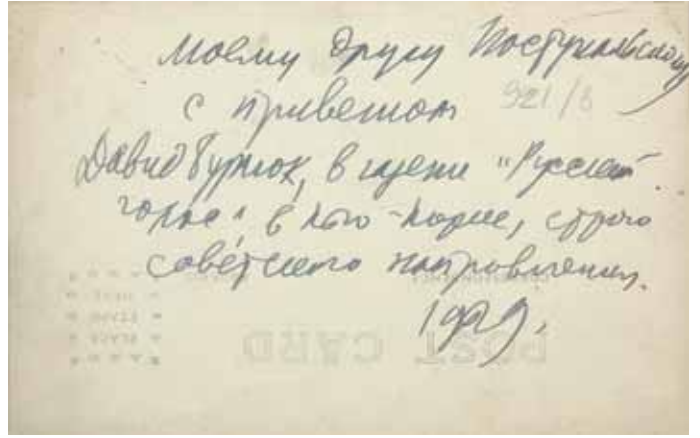 Моему другу Поступальскому
с приветом 921/8
Давид Бурлюк, в "Русский
голос" в Нью-Йорке, строго
советского направления.
1929.
POST CARD